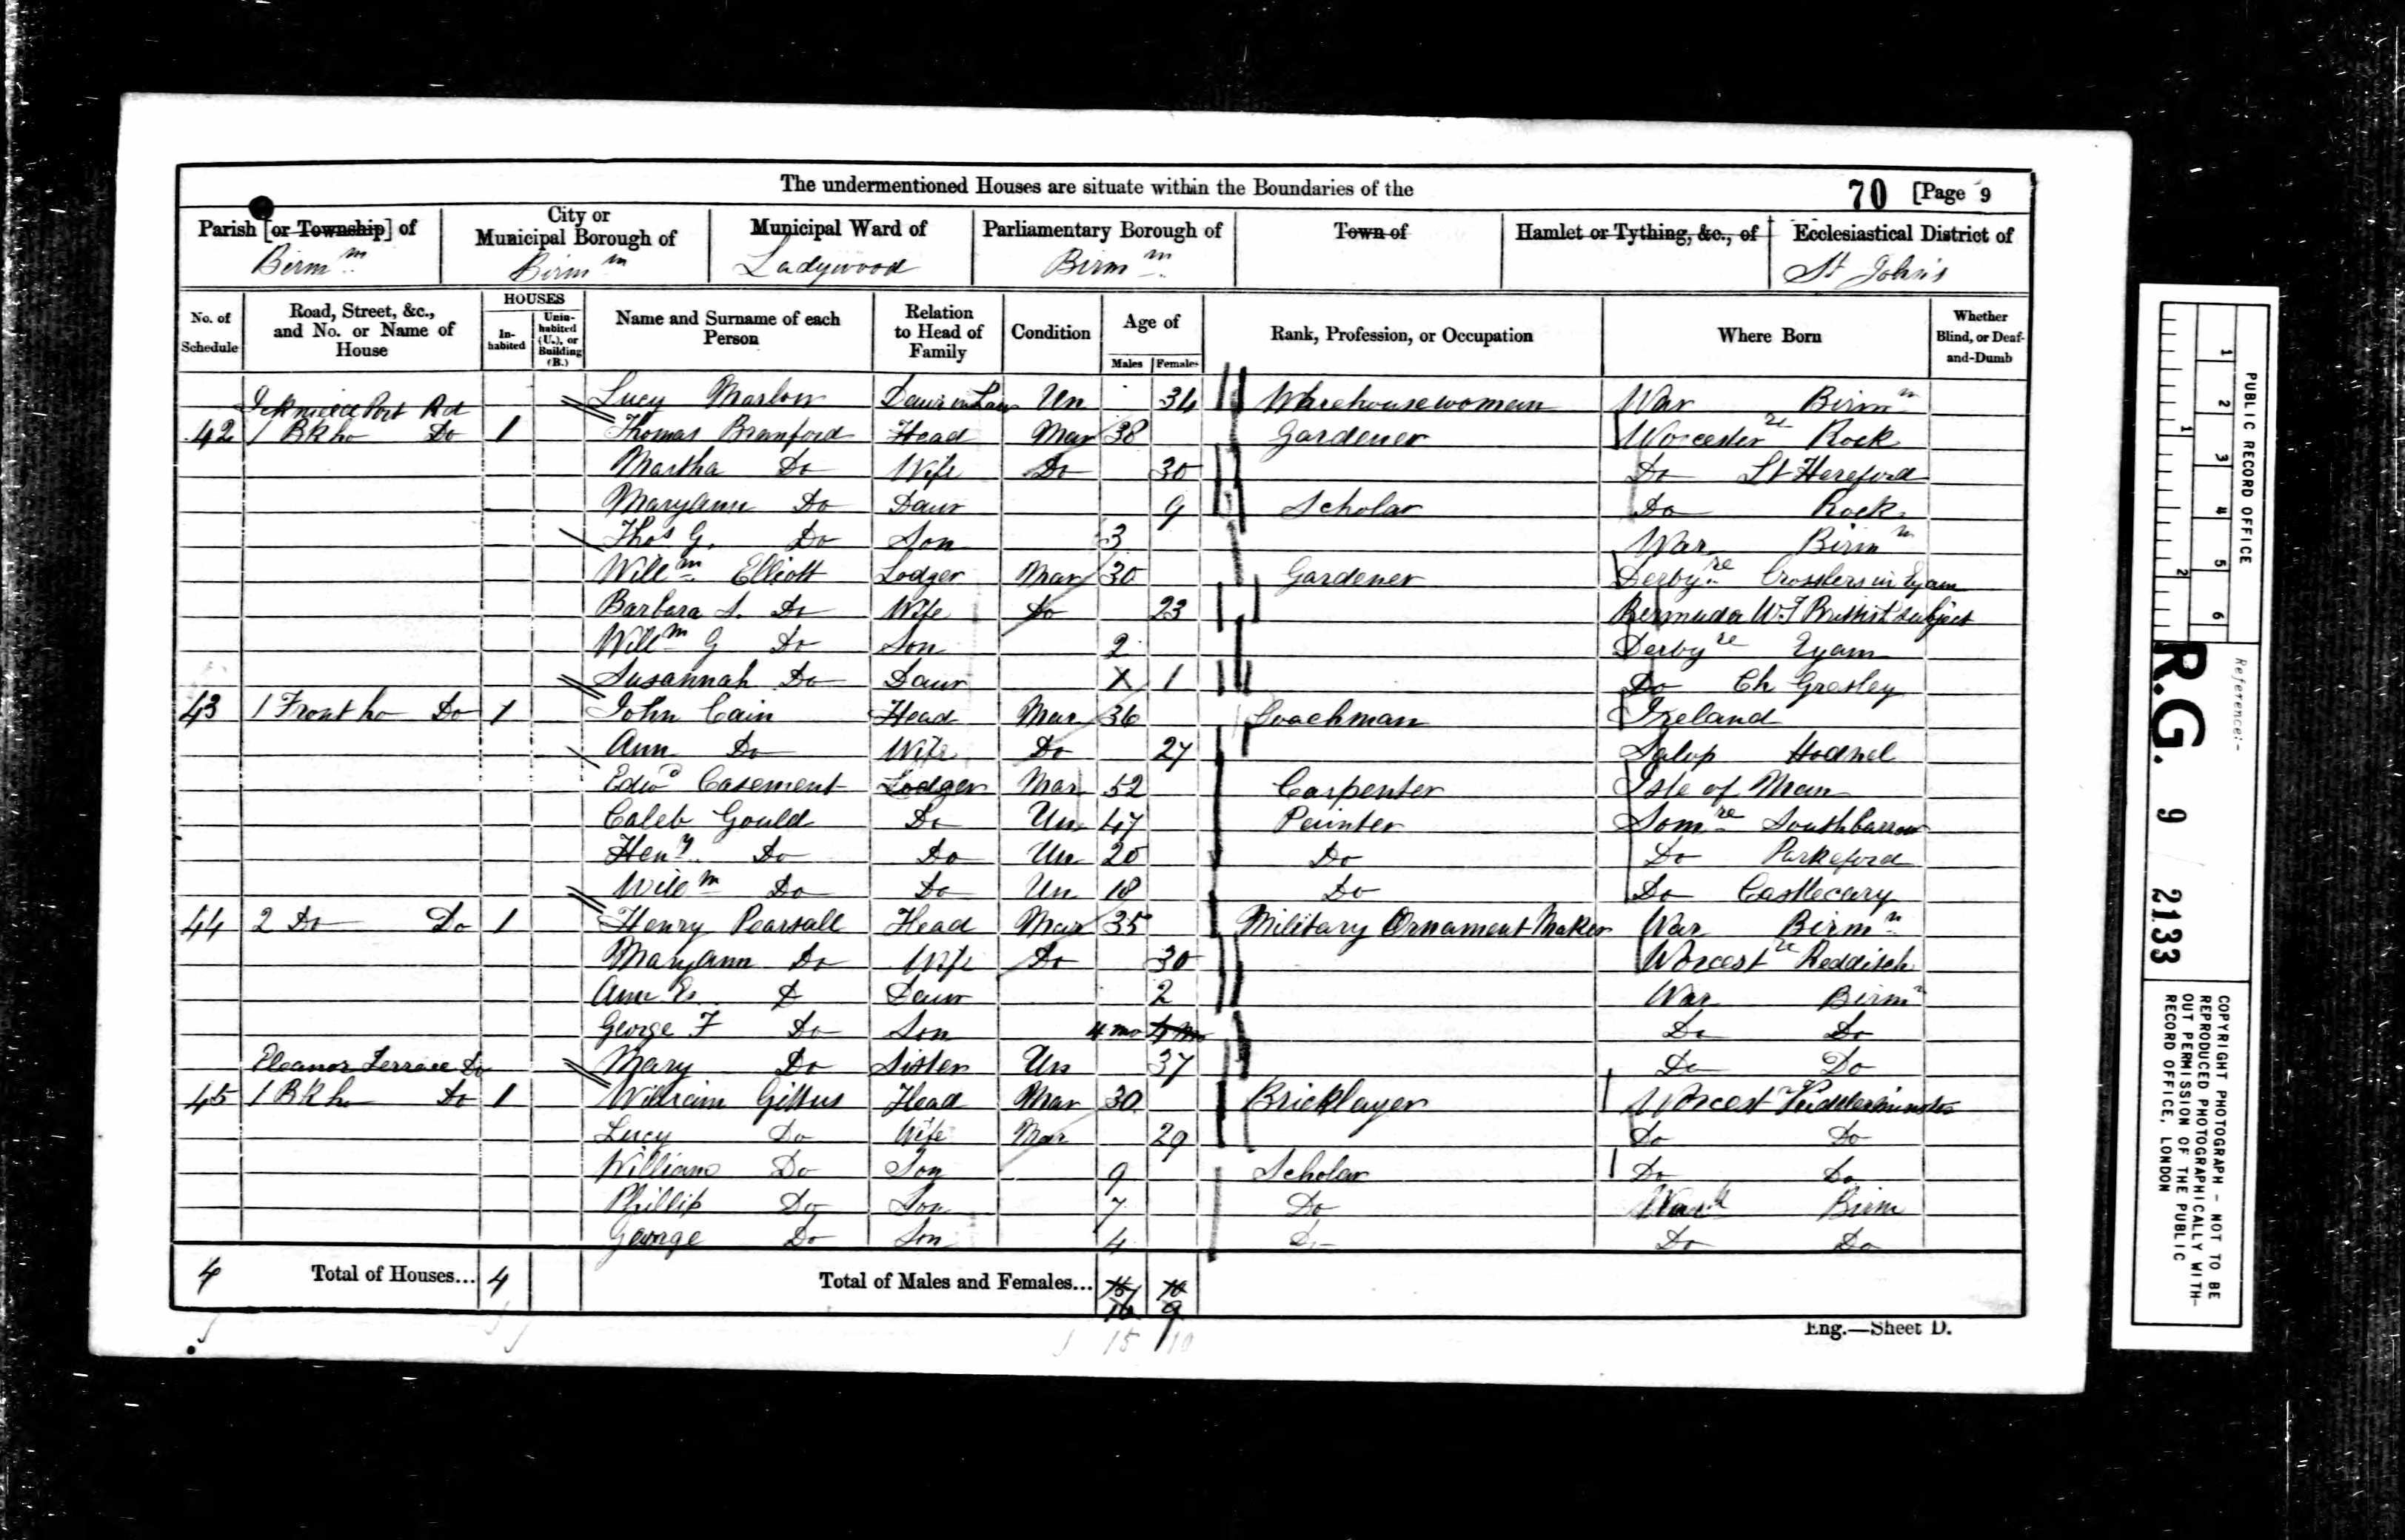 The undermentioned Houses are situate within the Boundaries of the
70 [Page 9
Parish [or Township] of
City or Municipal Borough of
Municipal Ward of
Parliamentary Borough of
Town of
Hamlet or Tything, &c., of
Ecclesiastical District of
Birmm
Birmm
Ladywood
Birmm
St John's
No. of Schedule
Road, Street, &c., and No. or Name of House
HOUSES
In-habited
Unin-habited (U.), or Building (B.)
Name and Surname of each Person
Relation to Head of Family
Condition
Age of
Males
Females
Rank, Profession, or Occupation
Where Born
Whether Blind, or Deaf-and-Dumb
Lucy Marlow Daur in Law Un 34 Warehousewoman War Birmm
Port Rd
42 1 Bk ho Do 1 Thomas Branford Head Mar 38 Gardener Worcesterre Rock
Martha Do Wife Do 30 Do Hereford
Maryann Do Daur 9 Scholar Do Rock
Thos G. Do Son 3 War Birmm
Willm Elliott Lodger Mar 30 Gardener Derbyre in Eyam
Barbara S. Do Wife Do 23 Bermuda W.I British Subject
Willm G Do Son 2 Derbyre Eyam
Susannah Do Daur 1 Do Ch Gresley
43 1 Front ho Do 1 John Cain Head Mar 36 Coachman Ireland
Ann Do Wife Do 27 Salop Hodnel
Edwd Casement Lodger Mar 52 Carpenter Isle of Man
Caleb Gould Do Un 47 Painter Somre Southbarrow
Heny Do Do Un 20 Do Do Parkeford
Willm Do Do Un 18 Do Do Castlecary
44 2 Do Do 1 Henry Pearsall Head Mar 35 Military Ornament Maker War Birmm
Maryann Do Wife Do 30 Worcestre Redditch
Ann E. Do Daur 2 War Birmm
George F Do Son 4 mo Do Do
Eleanor Terrace Do Mary Do Sister Un 37 Do Do
45 1 Bk ho Do 1 William Gittus Head Mar 30 Bricklayer Worcest Kidderminster
Lucy Do Wife Mar 29 Do Do
William Do Son 9 Scholar Do Do
Phillip Do Son 7 Do Wark Birm
George Do Son 4 Do Do Do
4 Total of Houses... 4
Total of Males and Females... 9
15 10
Eng.—Sheet D.
PUBLIC RECORD OFFICE
1 2 3 4 5 6
1 2
Reference:-
R.G. 9 / 2133
COPYRIGHT PHOTOGRAPH - NOT TO BE
REPRODUCED PHOTOGRAPHICALLY WITH-
OUT PERMISSION OF THE PUBLIC
RECORD OFFICE, LONDON